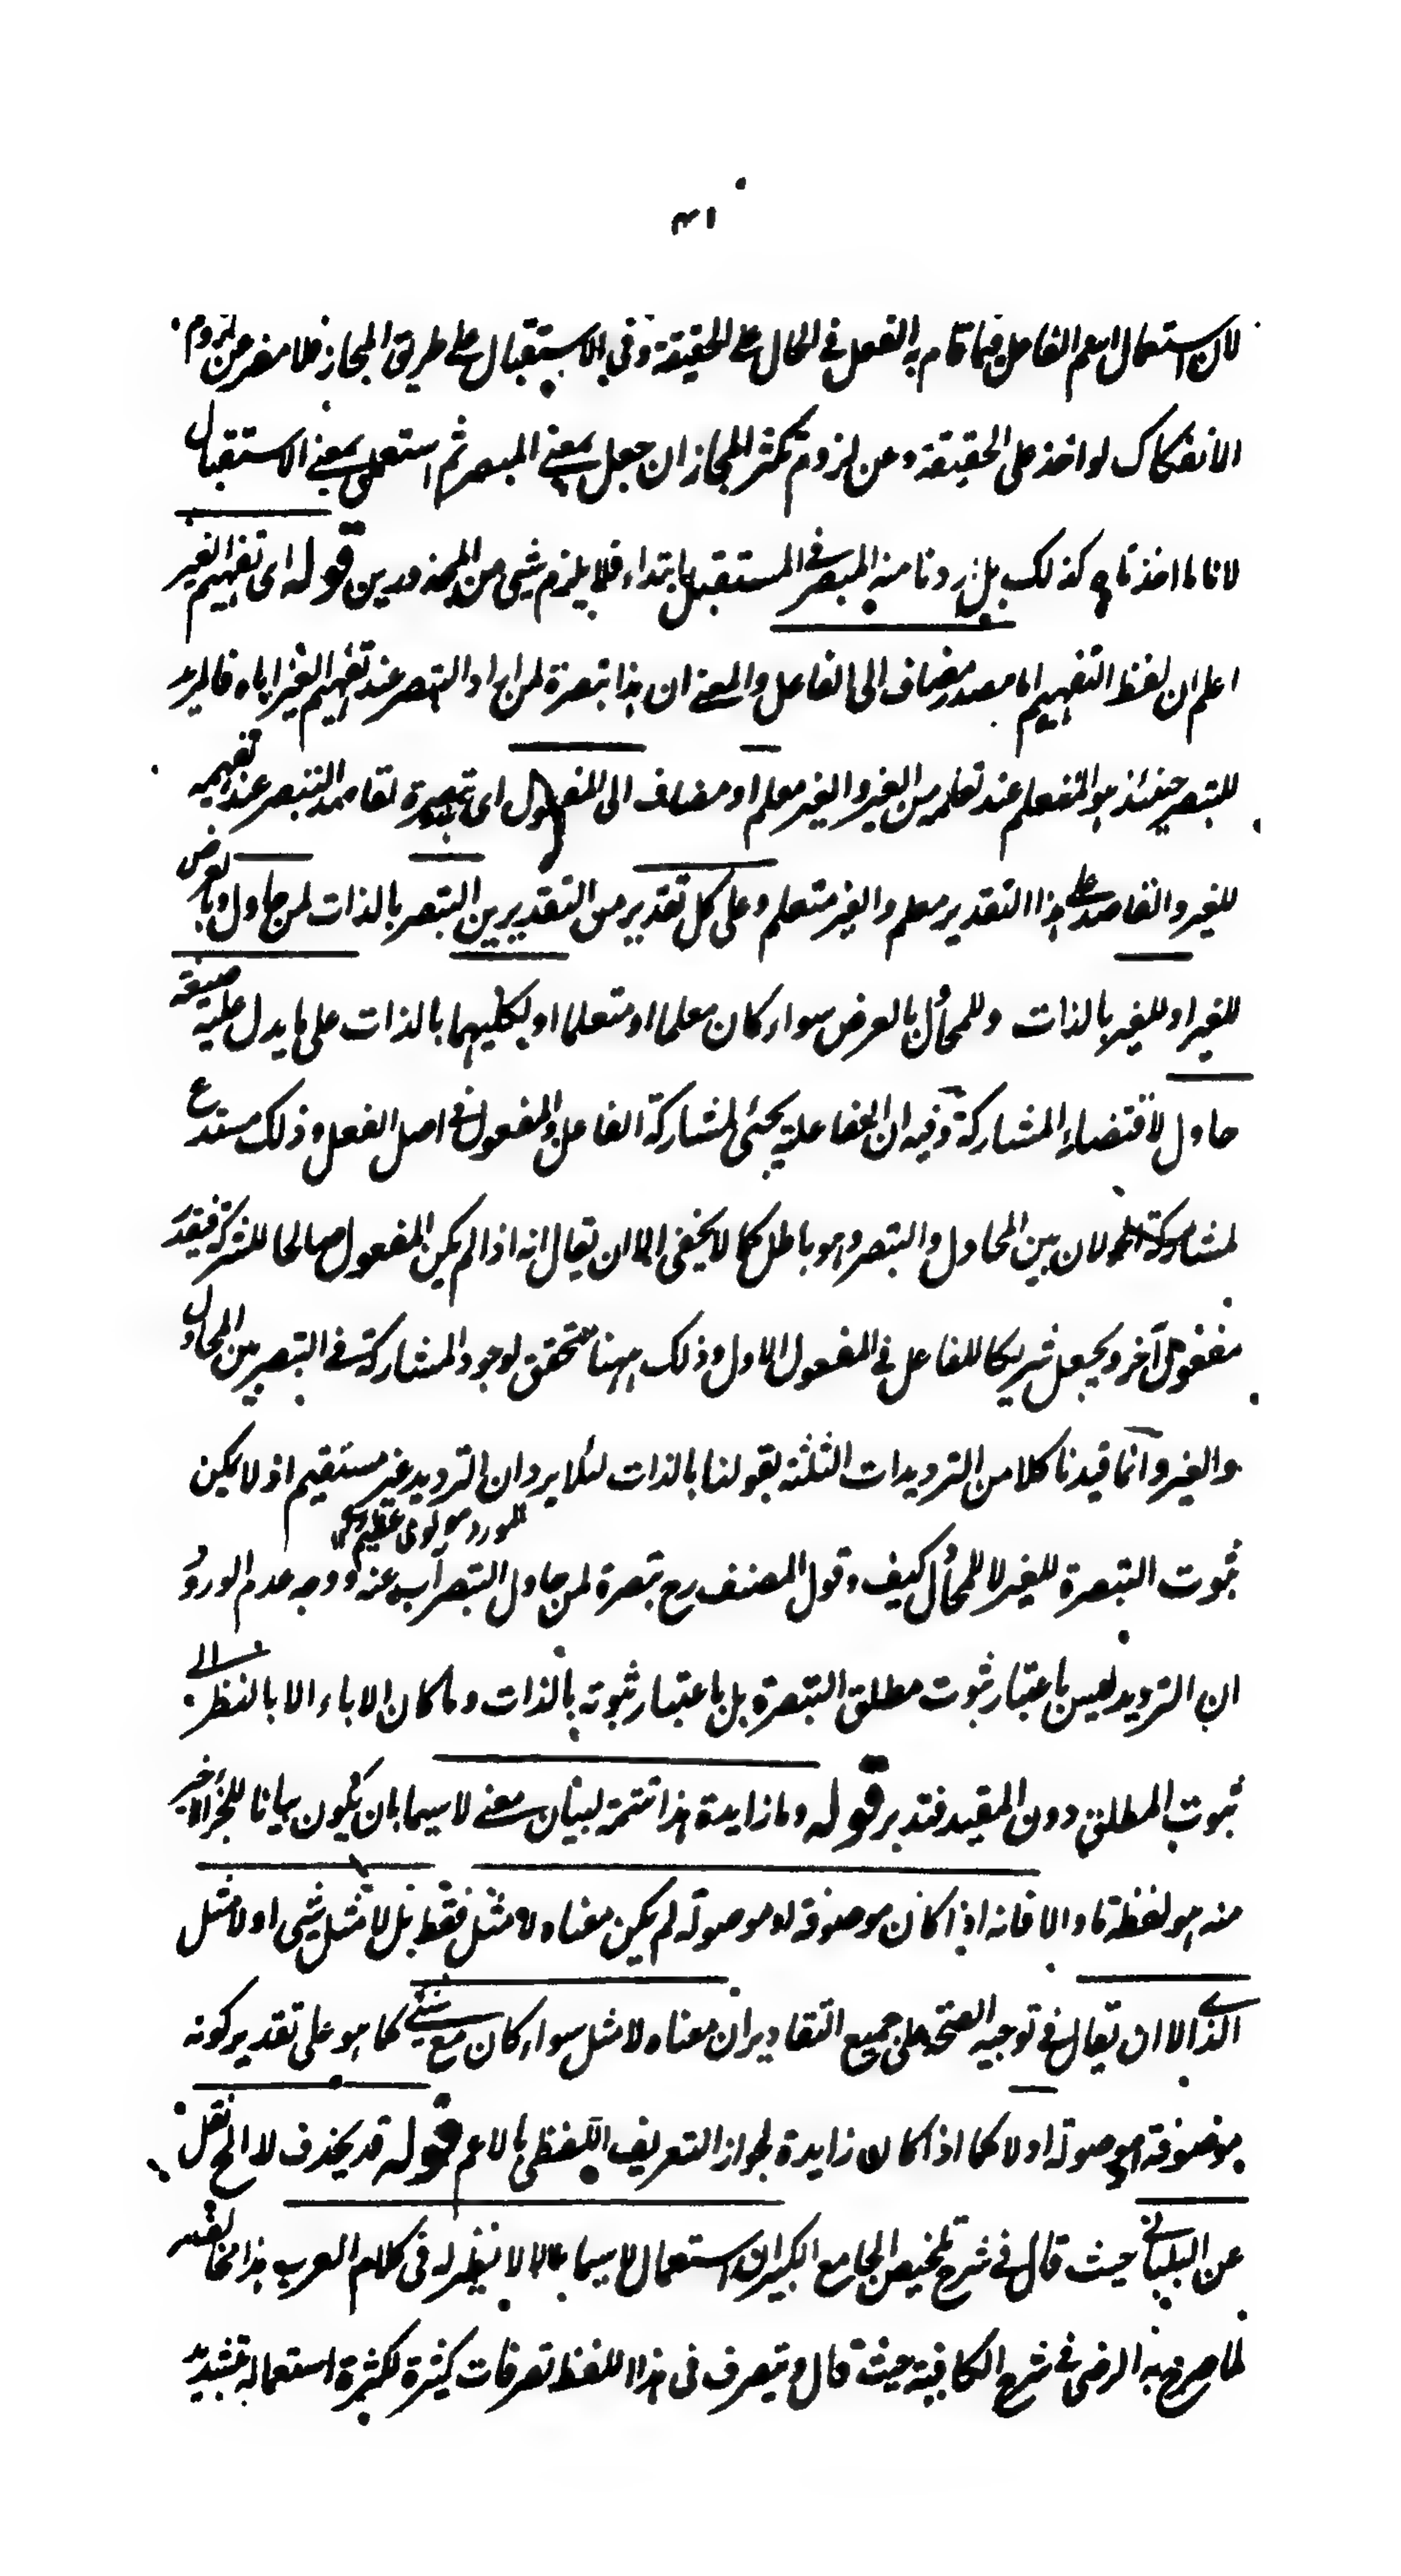 ٣١
لان استعمال اسم الفاعل فيما قام به الفعل في الحال على الحقيقة وفي الاستقبال على طريق المجاز فلا مفر عن لزوم
الانفكاك لو اخذ على الحقيقة وعن لزوم تكثر المجاز ان جعل بمعنى المبصر ثم استعمل بمعنى الاستقبال
لانا ما اخذناه كذلك بل اردنا منه المبصر في المستقبل ابتداء فلا يلزم شيء من المحذورين قوله اى تفهيم الغير
اعلم ان لفظ التفهيم اما مصدر مضاف الى الفاعل والمعنى ان هذا تبصرة لمن اراد التبصر عند تفهيم الغير اياه فالمريد
للتبصر حينئذ هو المتعلم عند تعلمه من الغير والغير معلم او مضاف الى المفعول اى تبصرة لقاصد التبصر عند تفهيمه
للغير والقاصد على هذا التقدير معلم والغير متعلم وعلى كل تقدير من التقديرين التبصر بالذات لمن حاول وبالعرض
للغير او للغير بالذات وللمحاول بالعرض سواء كان معلما او متعلما او لكليهما بالذات على ما يدل عليه صيغة
حاول لاقتضاء المشاركة وفيه ان المفاعلة يجئ لمشاركة الفاعل والمفعول في اصل الفعل وذلك مستدع
لمشاركة المحاولان بين المحاول والتبصر وهو باطل كما لا يخفى الا ان يقال انه اذا لم يكن المفعول صالحا للشركة فيقدر
مفعول آخر ويجعل شريكا للفاعل في المفعول الاول وذلك ههنا متحقق لوجود المشاركة في التبصر بين المحاول
والغير وانما قيدنا كلا من الترديدات الثلثة بقولنا بالذات لئلا يرد ان الترديد غير مستقيم اذ لا يمكن
المورد مولوى عظيم
ثبوت التبصرة للغير لا للمحاول كيف وقول المصنف رح تبصرة لمن حاول التبصر آب عنه ووجه عدم الورود
ان الترديد ليس باعتبار ثبوت مطلق التبصرة بل باعتبار ثبوته بالذات وما كان الاباء الا بالنظر الى
ثبوت المطلق دون المقيد فتدبر قوله وما زايدة هذا تتمة لبيان معنى لا سيما بان يكون بيانا للجزء الاخير
منه هو لفظة ما والا فانه اذا كان موصوفة او موصولة لم يكن معناه لا مثل فقط بل لا مثل شيء او لا مثل
الذي الا ان يقال في توجيه الصحة على جميع التقادير ان معناه لا مثل سواء كان مع شيء كما هو على تقدير كونه
موصوفة او موصولة او لا كما اذا كان زايدة لجواز التعريف اللفظي بالاعم قوله قد يحذف لا الخ نقل
عن البلباني حيث قال في شرح تلخيص الجامع الكبير ان استعمال لا سيما بلا لا نظير له في كلام العرب هذا مخالف
لما صرح به الرضى في شرح الكافية حيث قال ويتصرف في هذا اللفظ تصرفات كثيرة لكثرة استعماله بتشديد